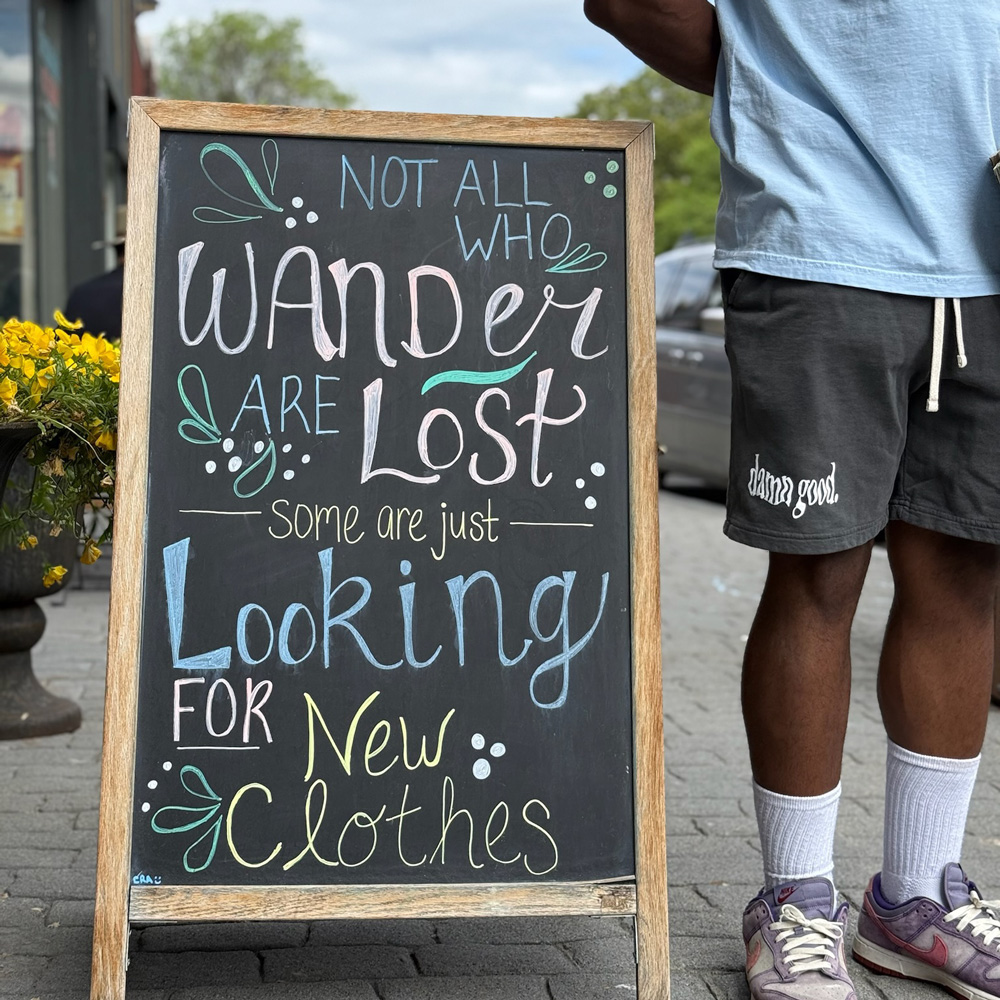 NOT ALL
WHO
WANDer
ARE Lost
Some are just
Looking
FOR New
Clothes
CRA
damn good.